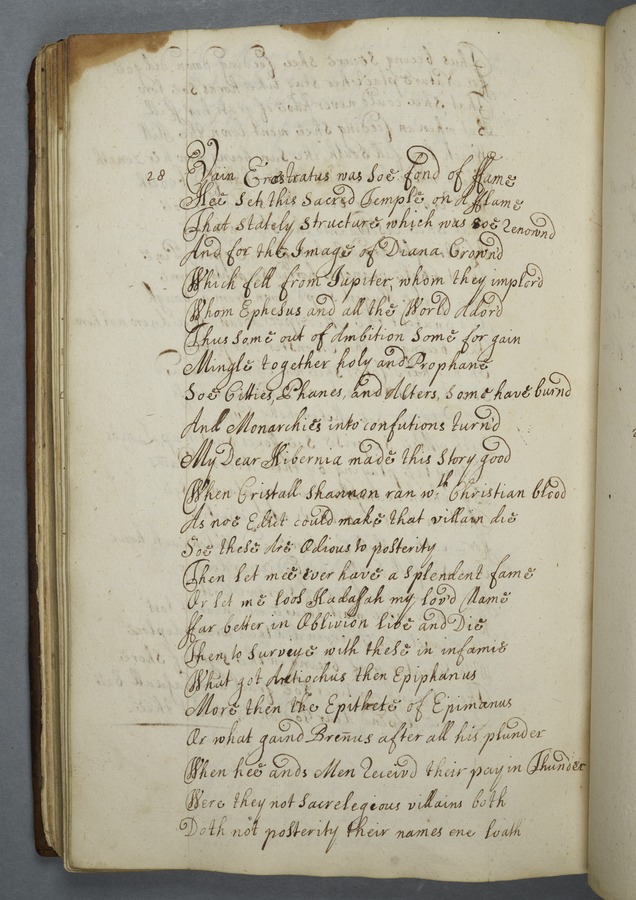 28 Vain Erostratus was soe fond of ffame
Hee Set this Sacred Temple on A fflame
That Stately Structure which was soe Renownd
And for the Image of Diana Crownd
Which fell from Iupiter, whom they implord
Whom Ephesus and all the World Adord
Thus Some out of Ambition Some for gain
Mingle together holy and Prophane
Soe Citties, Phanes, and Alters, Some have burnd
And Monarchies into confutions turnd
My Dear Hibernia made this Story good
When Cristall Shannon ran wth Christian blood
As noe Edict could make that villain die
Soe these Are Odious to posterity
Then let mee ever have a Splendent fame
Or let me loos Hadassah my lov'd Name
Ffar better in Oblivion live and Die
Then to Survive with these in infamie
What got Antiochus then Epiphanus
More then the Epithete of Epimanus
Or what gaind Brenus after all his plunder
When hee and's Men Receivd their pay in Thunder
Were they not Sacrelegious villains both
Doth not posterity their names ene loath